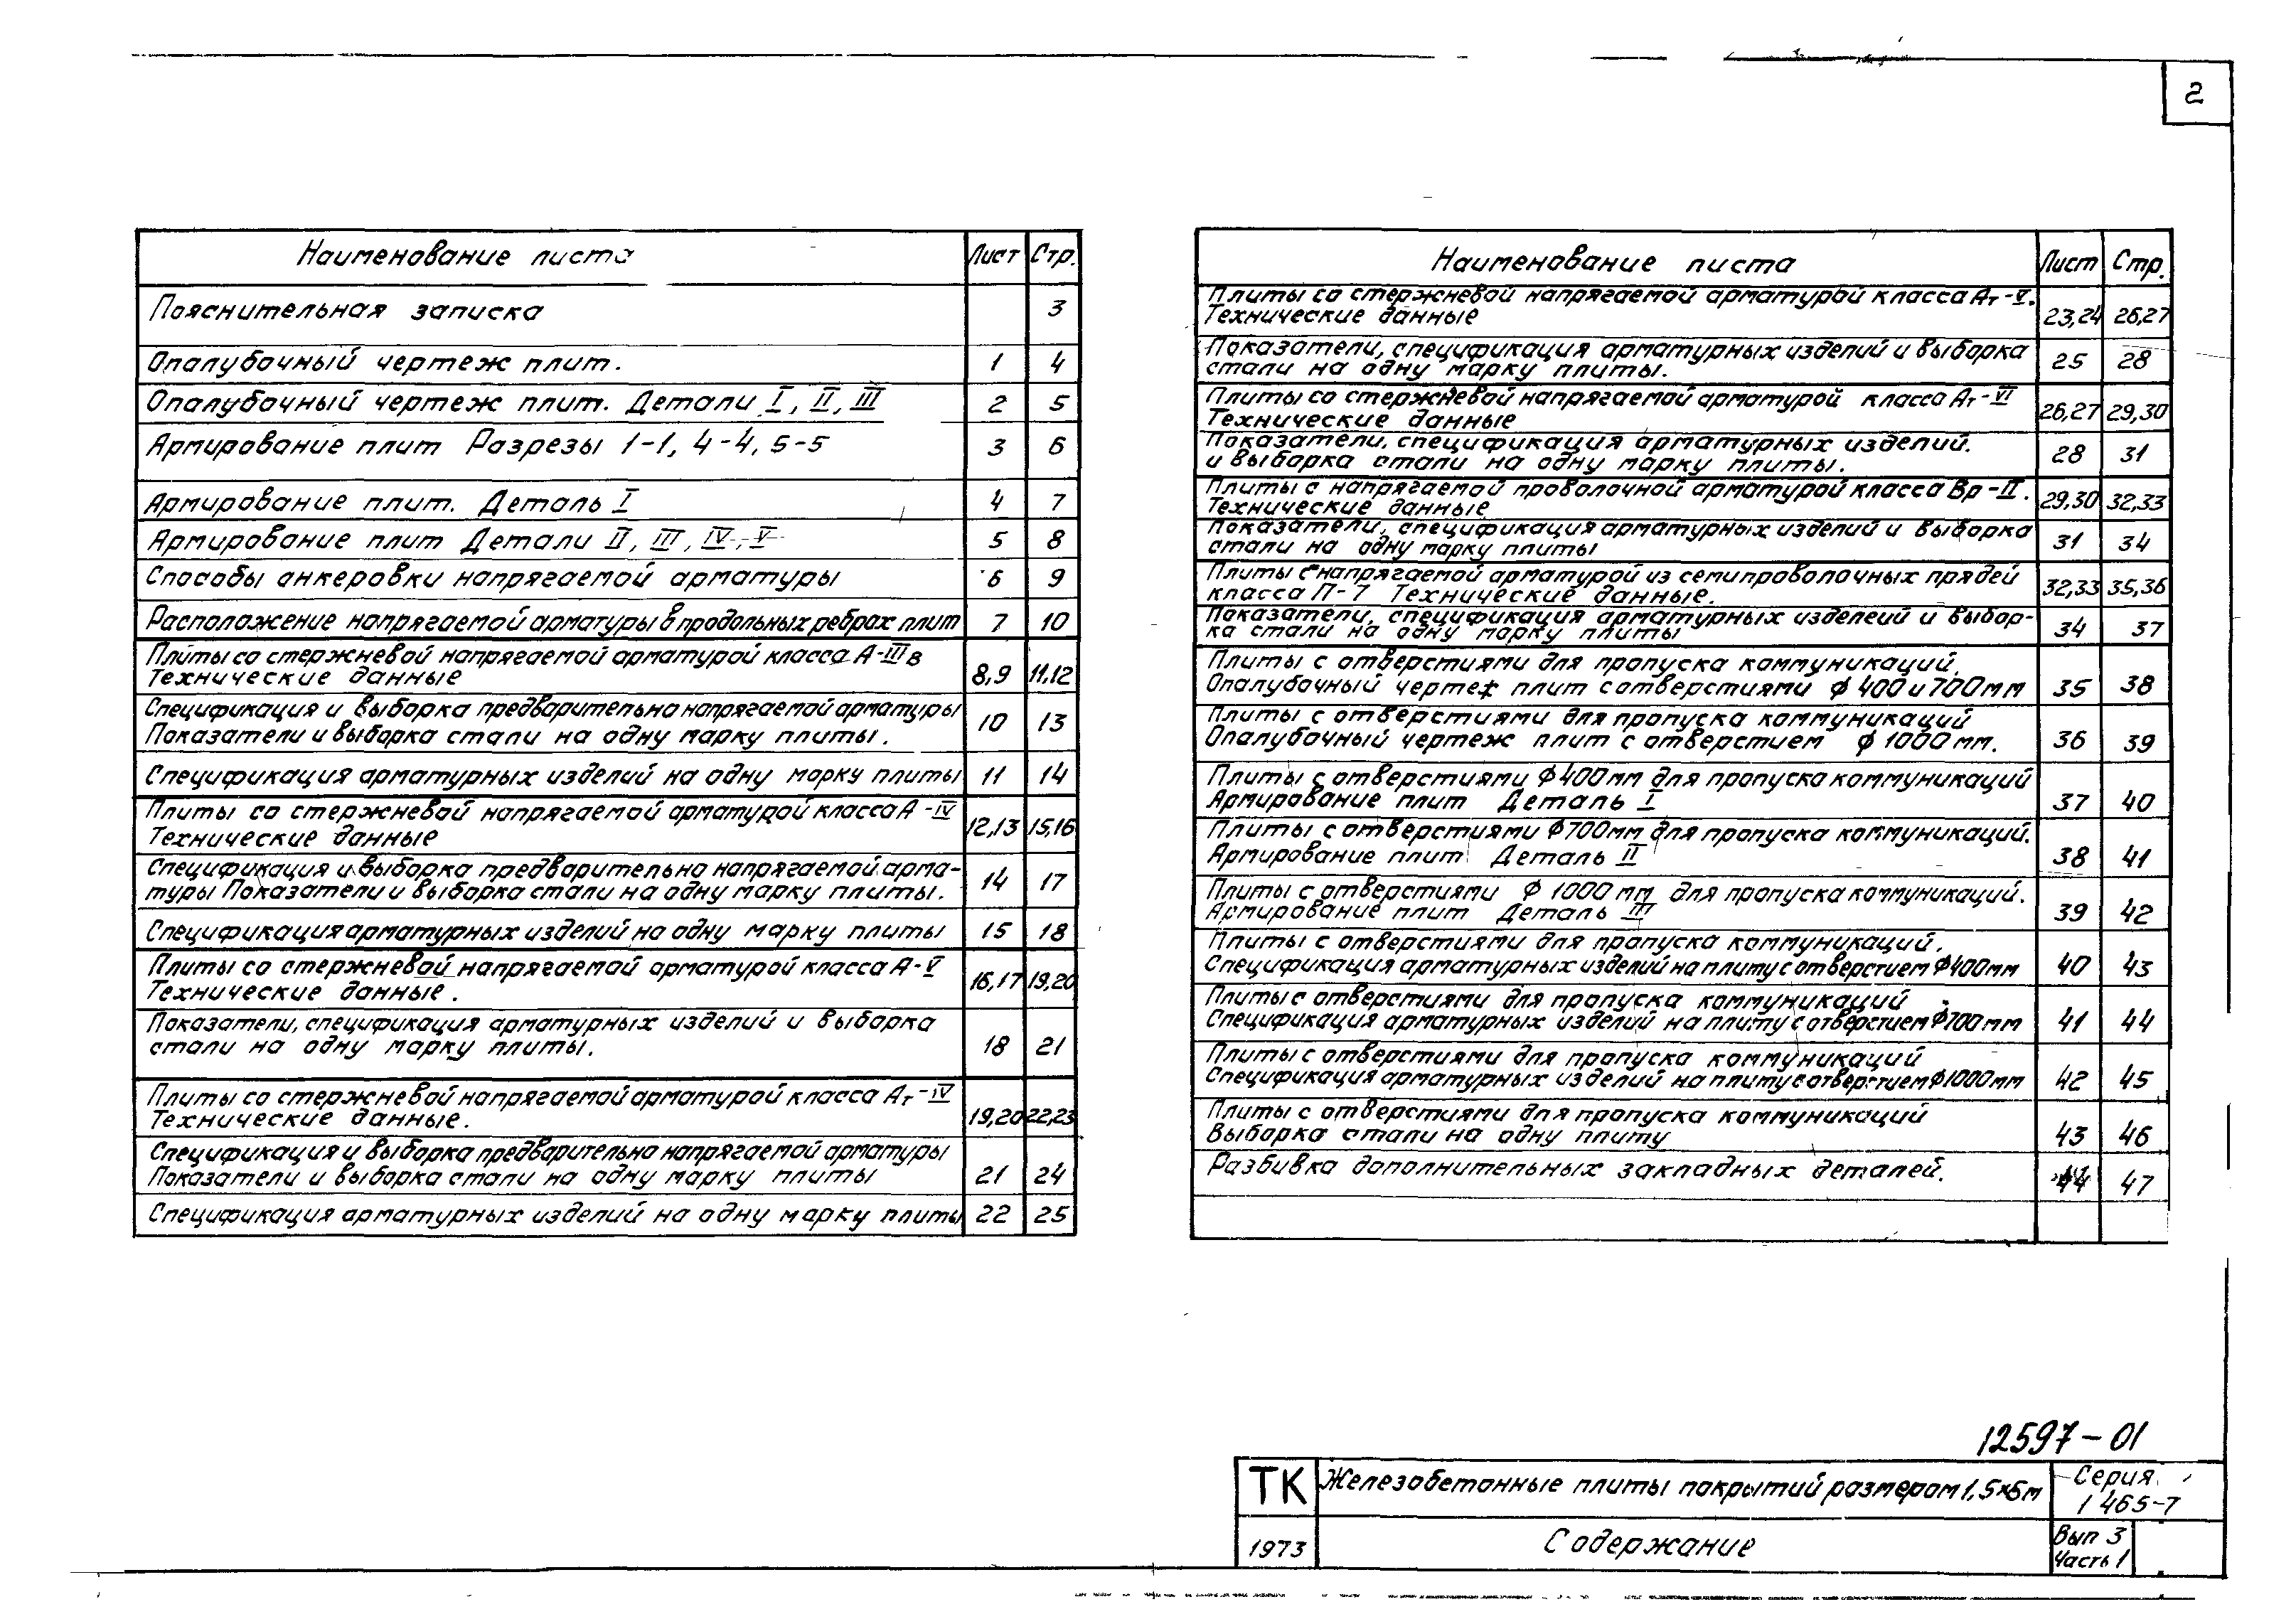 2
Наименование листа Лист Стр.
Пояснительная записка 3
Опалубочный чертеж плит. 1 4
Опалубочный чертеж плит. Детали I, II, III 2 5
Армирование плит Разрезы 1-1, 4-4, 5-5 3 6
Армирование плит. Деталь I 4 7
Армирование плит Детали II, III, IV, V 5 8
Способы анкеровки напрягаемой арматуры 6 9
Расположение напрягаемой арматуры в продольных ребрах плит 7 10
Плиты со стержневой напрягаемой арматурой класса А-IIIв
Технические данные 8,9 11,12
Спецификация и выборка предварительно напрягаемой арматуры
Показатели и выборка стали на одну марку плиты. 10 13
Спецификация арматурных изделий на одну марку плиты 11 14
Плиты со стержневой напрягаемой арматурой класса А-IV
Технические данные 12,13 15,16
Спецификация и выборка предварительно напрягаемой арма-
туры Показатели и выборка стали на одну марку плиты. 14 17
Спецификация арматурных изделий на одну марку плиты 15 18
Плиты со стержневой напрягаемой арматурой класса А-V
Технические данные. 16,17 19,20
Показатели, спецификация арматурных изделий и выборка
стали на одну марку плиты. 18 21
Плиты со стержневой напрягаемой арматурой класса Ат-IV
Технические данные. 19,20 22,23
Спецификация и выборка предварительно напрягаемой арматуры
Показатели и выборка стали на одну марку плиты 21 24
Спецификация арматурных изделий на одну марку плиты 22 25
Наименование листа Лист Стр.
Плиты со стержневой напрягаемой арматурой класса Ат-V.
Технические данные 23,24 26,27
Показатели, спецификация арматурных изделий и выборка
стали на одну марку плиты. 25 28
Плиты со стержневой напрягаемой арматурой класса Ат-VI
Технические данные 26,27 29,30
Показатели, спецификация арматурных изделий.
и выборка стали на одну марку плиты. 28 31
Плиты с напрягаемой проволочной арматурой класса Вр-II.
Технические данные 29,30 32,33
Показатели, спецификация арматурных изделий и выборка
стали на одну марку плиты 31 34
Плиты с напрягаемой арматурой из семипроволочных прядей
класса П-7 Технические данные. 32,33 35,36
Показатели, спецификация арматурных изделеий и выбор-
ка стали на одну марку плиты 34 37
Плиты с отверстиями для пропуска коммуникаций.
Опалубочный чертеж плит с отверстиями ф 400 и 700мм 35 38
Плиты с отверстиями для пропуска коммуникаций
Опалубочный чертеж плит с отверстием ф 1000мм. 36 39
Плиты с отверстиями ф400мм для пропуска коммуникаций
Армирование плит Деталь I 37 40
Плиты с отверстиями ф700мм для пропуска коммуникаций.
Армирование плит Деталь II 38 41
Плиты с отверстиями ф 1000мм для пропуска коммуникаций.
Армирование плит Деталь III 39 42
Плиты с отверстиями для пропуска коммуникаций.
Спецификация арматурных изделий на плиту с отверстием ф400мм 40 43
Плиты с отверстиями для пропуска коммуникаций
Спецификация арматурных изделий на плиту с отверстием ф700мм 41 44
Плиты с отверстиями для пропуска коммуникаций
Спецификация арматурных изделий на плиту с отверстием ф1000мм 42 45
Плиты с отверстиями для пропуска коммуникаций
Выборка стали на одну плиту 43 46
Разбивка дополнительных закладных деталей. 44 47
12597-01
ТК Железобетонные плиты покрытий размером 1,5×6м Серия
1 465-7
1973 Содержание Вып 3
Часть 1